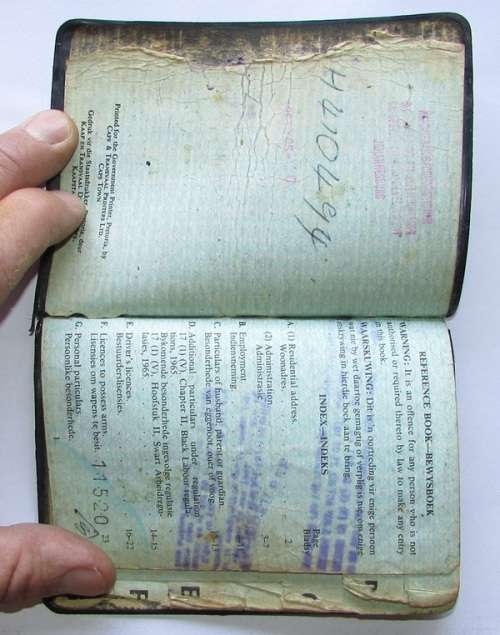 4410494
Printed for the Government Printer, Pretoria, by
CAPE & TRANSVAAL PRINTERS LTD.
CAPE TOWN
Gedruk vir die Staatsdrukker, Pretoria, deur
KAAP EN TRANSVAAL
KAAPSTAD
REFERENCE BOOK—BEWYSBOEK
WARNING: It is an offence for any person who is not
authorised or required thereto by law to make any entry
in this book.
WAARSKUWING: Dit is 'n oortreding vir enige persoon
wat nie by wet daartoe gemagtig of verplig is nie, om enige
inskrywing in hierdie boek aan te bring.
INDEX—INDEKS
Page
Bladsy
A. (1) Residential address.
Woonadres. 2
(2) Administration.
Administrasie 3-7
B. Employment.
Indiensneming.
C. Particulars of husband, parent or guardian.
Besonderhede van eggenoot, ouer of voog. 13
D. Additional particulars under regulation
17 (1) (V), Chapter II, Black Labour regula-
tions, 1965
Bykomende besonderhede ingevolge regulasie
17 (1) (V), Hoofstuk II, Swart Arbeidregu-
lasies, 1965 14-15
E. Driver's licences.
Bestuurderslisensies. 16-22
F. Licences to possess arms.
Lisensies om wapens te besit. 23
G. Personal particulars.
Persoonlike besonderhede.
11520
1
E
F